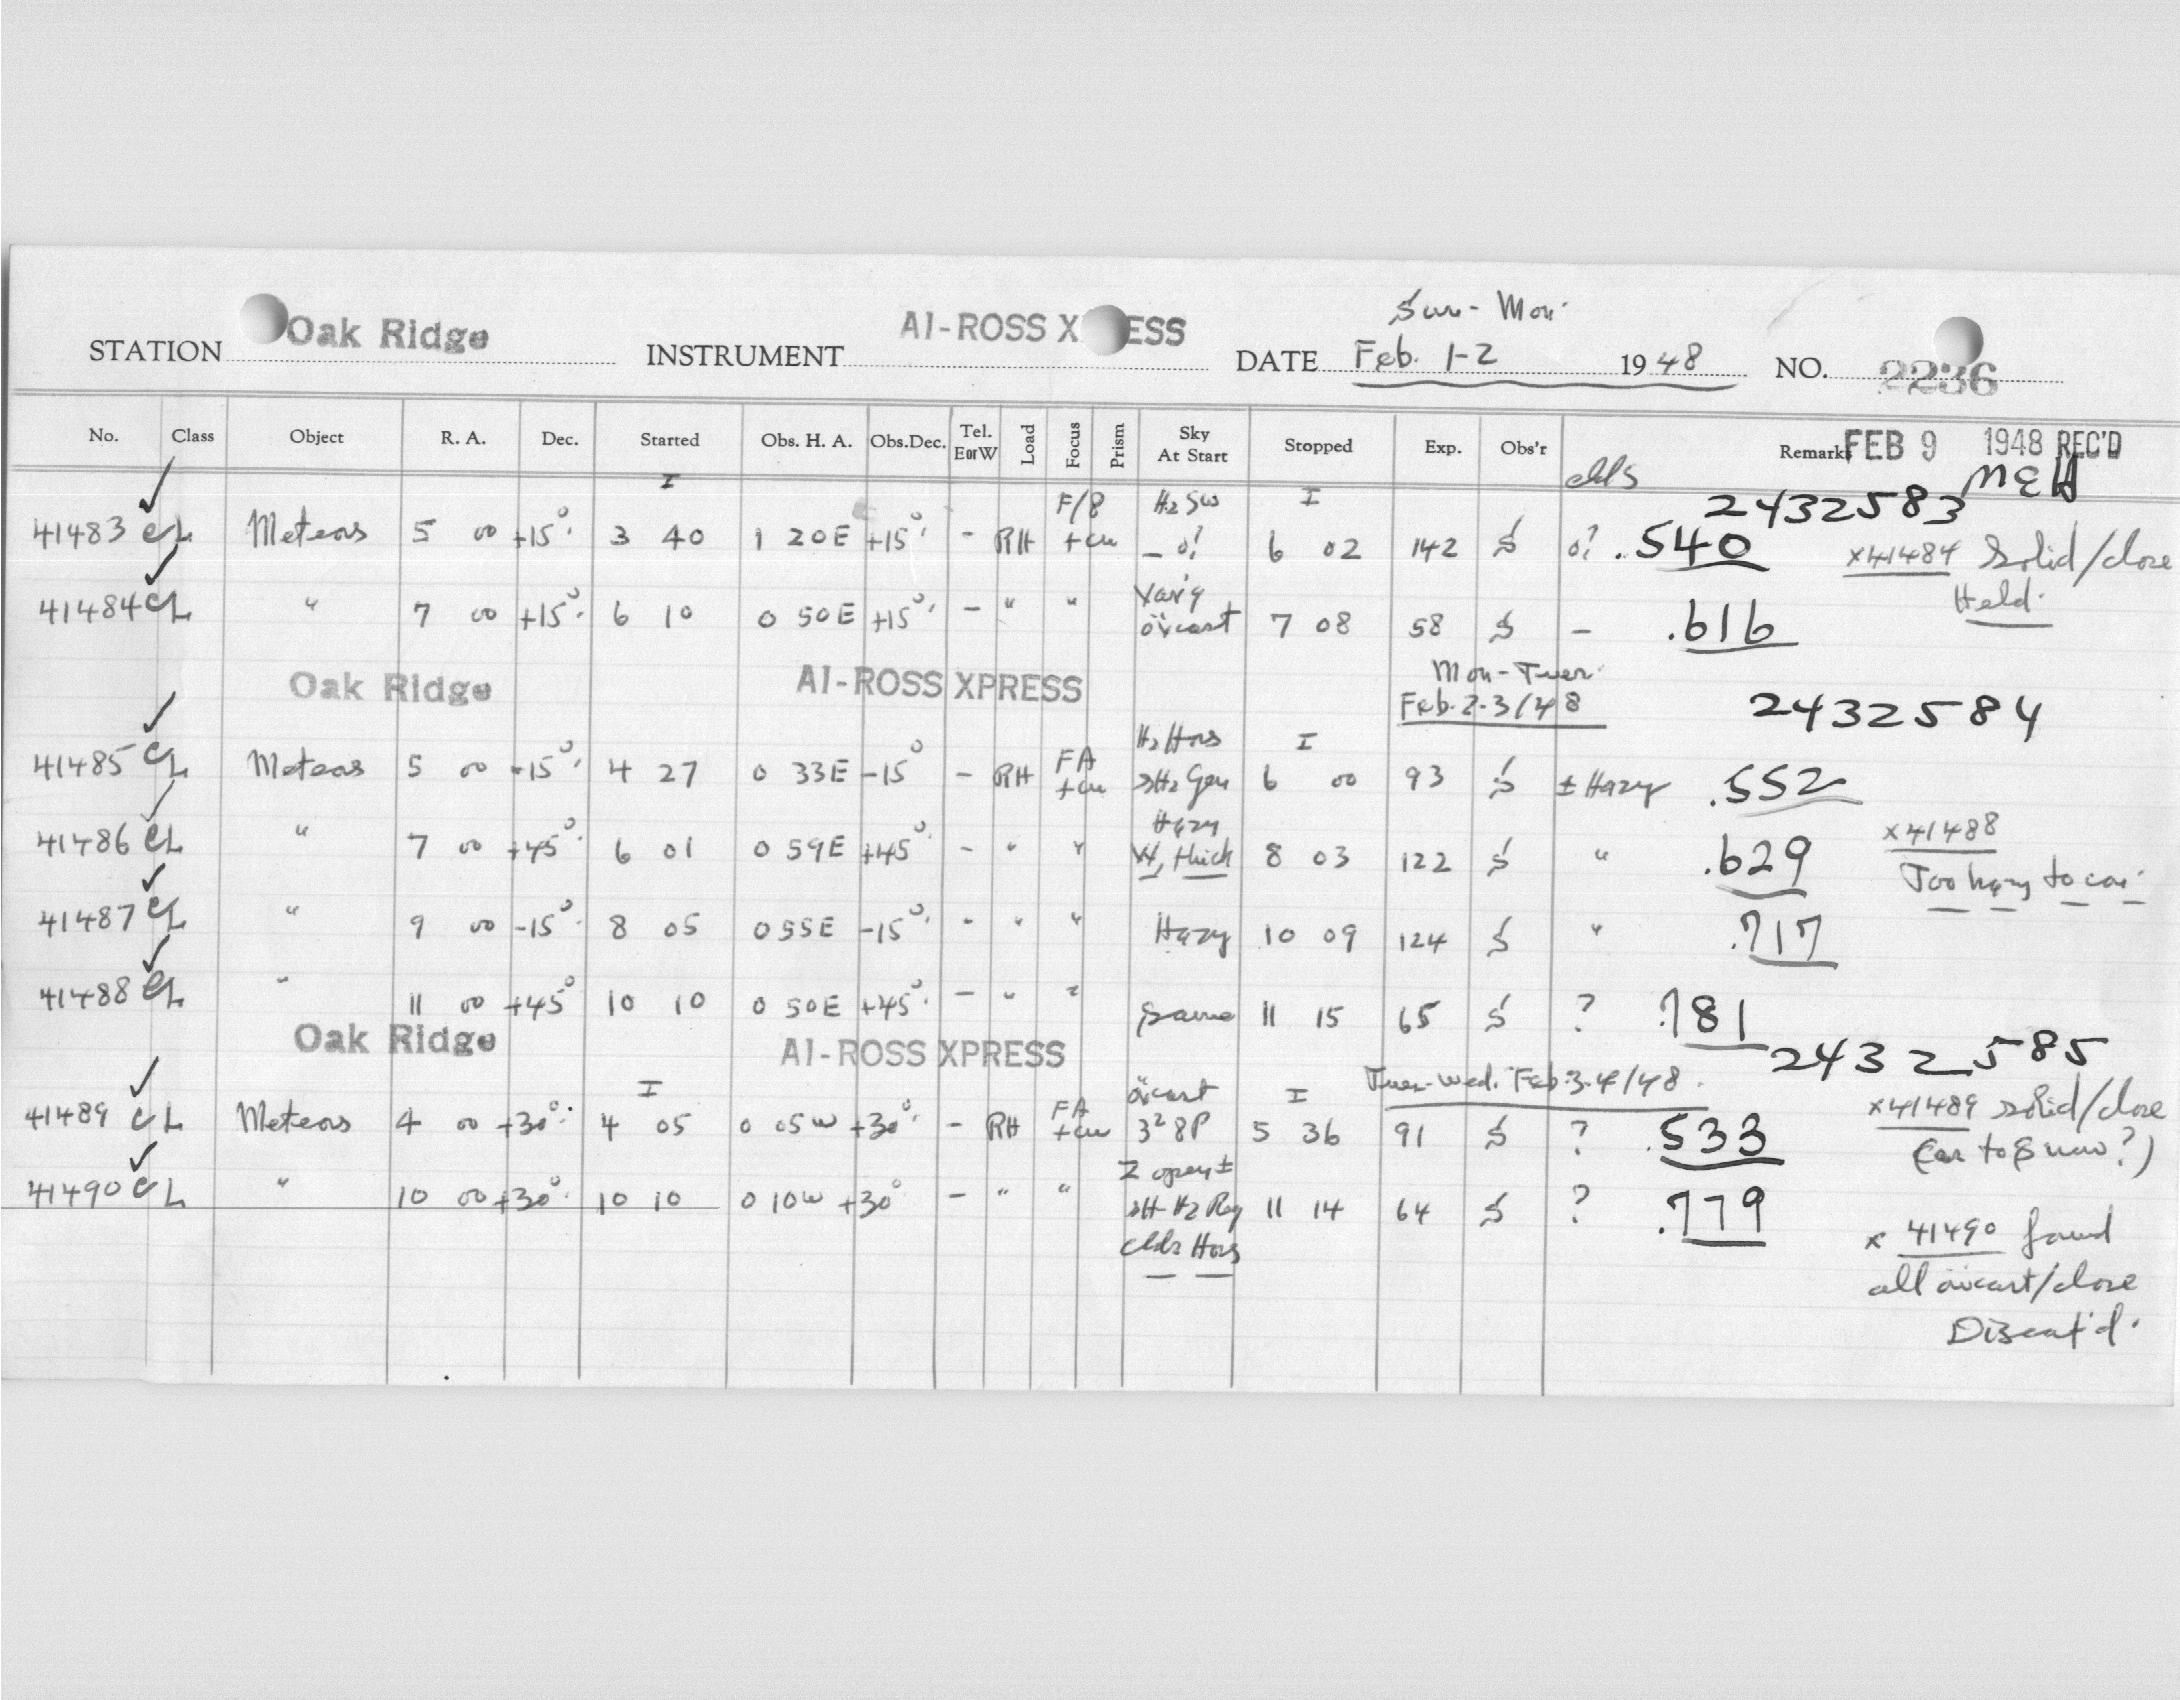 Sun - Mon.
STATION Oak Ridge INSTRUMENT AI-ROSS XPRESS DATE Feb. 1-2 1948 NO. 2236
No. Class Object R. A. Dec. Started Obs. H. A. Obs.Dec. Tel. EorW Load Focus Prism Sky At Start Stopped Exp. Obs'r Remarks FEB 9 1948 REC'D
I F/8 H2 SW I clds 2432583 MEH
41483 CL Meteors 5 00 +15° 3 40 1 20E +15° - RH +cu - 0? 6 02 142 S 0? .540 x41484 Solid/close
Held.
41484 CL " 7 00 +15° 6 10 0 50E +15° - " " Var'g öv̈cast 7 08 58 S - .616
Oak Ridge AI-ROSS XPRESS Mon-Tues.
Feb. 2-3/48 2432584
41485 CL Meteors 5 00 -15° 4 27 0 33E -15° - RH FA +cu H2 Hors Gen I 6 00 93 S ± Hazy .552
41486 CL " 7 00 +45° 6 01 0 59E +45° - " " Hazy W, thick 8 03 122 S " .629 x41488
Too hazy to con.
41487 CL " 9 00 -15° 8 05 0 55E -15° " " " Hazy 10 09 124 S " .717
41488 CL " 11 00 +45° 10 10 0 50E +45° - " " Same 11 15 65 S ? .781
Oak Ridge AI-ROSS XPRESS 2432585
I öv̈cast I Tues-Wed. Feb. 3-4/48
41489 CL Meteors 4 00 +30° 4 05 0 05W +30° - RH FA +cu 5 36 91 S ? .533 x41489 solid/close
to snow?)
41490 CL " 10 00 +30° 10 10 0 10W +30° - " " Z open± 11 14 64 S ? .779
clds Hors
x 41490 found
all öv̈cast/close
Discont'd.